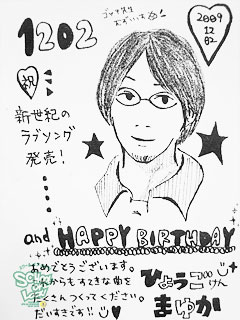 1202
ゴッチ先生
むずいっす
2009
12
02
祝
新世紀の
ラブソング
発売!
and HAPPY BIRTHDAY
おめでとうございます。
これからもすてきな曲を
たくさんつくってください。
だいすきです!!
ひょうごけん
まゆか